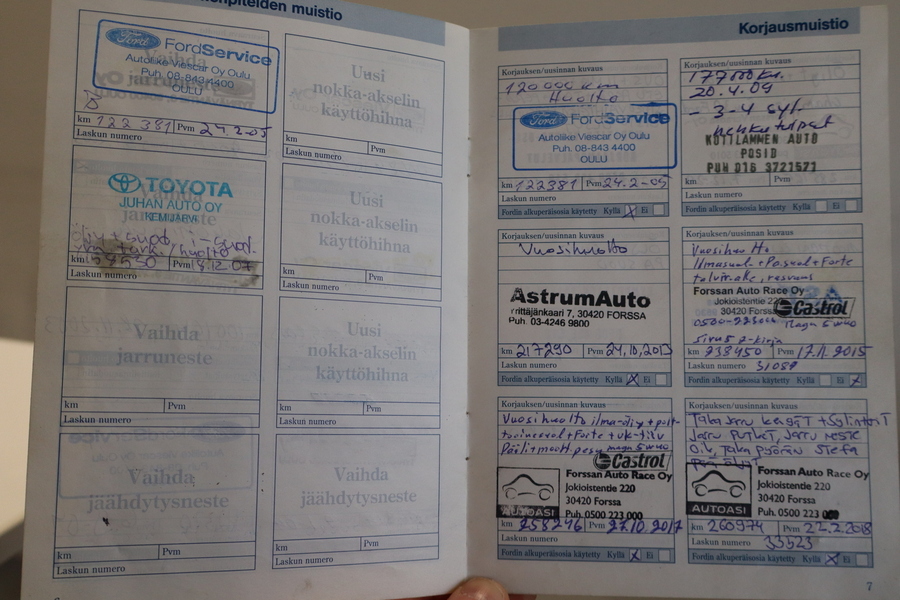 muistio
Ford FordService
Autoliike Viescar Oy Oulu
Puh. 08-843 4400
OULU
km 122 381 Pvm 24.2-05
Laskun numero
Uusi
nokka-akselin
käyttöhihna
km Pvm
Laskun numero
TOYOTA
JUHAN AUTO OY
KEMIJÄRVI
km Pvm 18.12.07
Laskun numero
Uusi
nokka-akselin
käyttöhihna
km Pvm
Laskun numero
Vaihda
jarruneste
km Pvm
Laskun numero
Uusi
nokka-akselin
käyttöhihna
km Pvm
Laskun numero
Vaihda
jäähdytysneste
km Pvm
Laskun numero
Vaihda
jäähdytysneste
km Pvm
Laskun numero
Korjausmuistio
Korjauksen/uusinnan kuvaus
120 000 km
Huolto
Ford FordService
Autoliike Viescar Oy Oulu
Puh. 08-843 4400
OULU
km 122381 Pvm 24.2-05
Laskun numero
Fordin alkuperäisosia käytetty Kyllä X Ei
Korjauksen/uusinnan kuvaus
177000 km.
20.4.09
- 3-4 syl.
hehkutulpat
KOTILAMMEN AUTO
POSIO
PUH 016 3721571
km Pvm
Laskun numero
Fordin alkuperäisosia käytetty Kyllä Ei
Korjauksen/uusinnan kuvaus
Vuosihuolto
AstrumAuto
Yrittäjänkaari 7, 30420 FORSSA
Puh. 03-4246 9800
km 217290 Pvm 24.10.2013
Laskun numero
Fordin alkuperäisosia käytetty Kyllä X Ei
Korjauksen/uusinnan kuvaus
Vuosihuolto
Forssan Auto Race Oy
Jokioistentie 220
30420 Forssa
Castrol
km 238450 Pvm 17.11.2015
Laskun numero 31087
Fordin alkuperäisosia käytetty Kyllä Ei X
Korjauksen/uusinnan kuvaus
Vuosihuolto ilma-öljy + polt-
Castrol
Forssan Auto Race Oy
Jokioistentie 220
30420 Forssa
AUTOASI Puh. 0500 223 000
km 258246 Pvm 27.10.2017
Laskun numero
Fordin alkuperäisosia käytetty Kyllä X Ei
Korjauksen/uusinnan kuvaus
Taka Jarru kengät + Sylinterit
Jarru Putket, Jarru neste
Forssan Auto Race Oy
Jokioistentie 220
30420 Forssa
AUTOASI Puh. 0500 223 000
km 260974 Pvm 22.2.2018
Laskun numero 33523
Fordin alkuperäisosia käytetty Kyllä X Ei
7